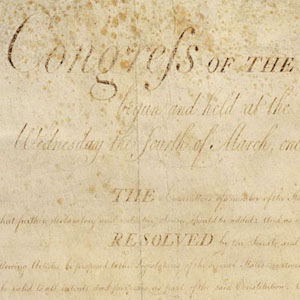 Congreſs OF THE
begun and held at the
Wednesday the fourth of March, one
THE Conventions of a number of the
that further declaratory and restrictive clauses should be added
RESOLVED by the Senate and
following Articles be proposed to the Legislatures of the several States
to be valid to all intents and purposes, as part of the said Constitution